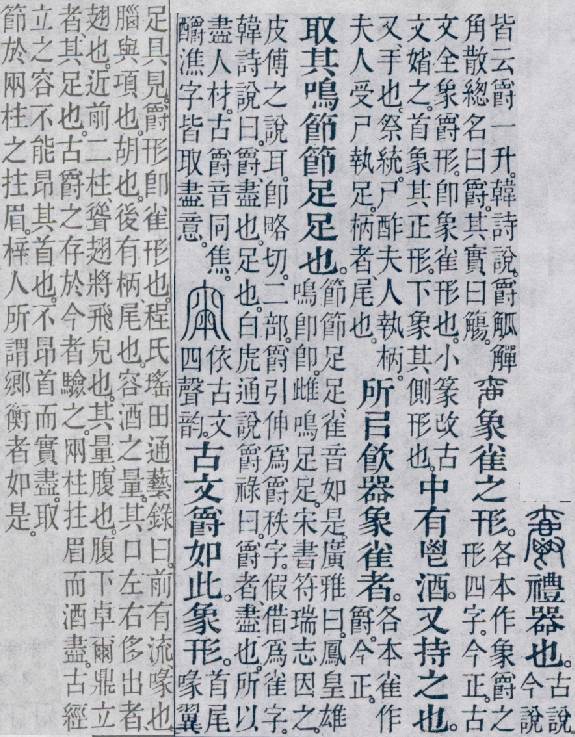 禮器也。古說
今說
皆云爵一升。韓詩說爵觚觶
角散總名曰爵。其實曰觴。
象雀之形。
各本作象爵之
形四字。今正。古
文全象爵形。卽象雀形也。小篆改古
文媘之。首象其正形。下象其側形也。
中有鬯酒。又持之也。
又、手也。祭統。尸酢夫人執柄。
夫人受尸執足。柄者、尾也。
所㠯飮器象雀者。
各本雀作
爵。今正。
取其鳴節節足足也。
節節足足、雀音如是。廣雅曰。鳳皇雄
鳴卽卽。雌鳴足足。宋書符瑞志因之。
皮傅之說耳。卽略切。二部。爵引伸爲爵秩字。假借爲雀字。
韓詩說曰。爵、盡也。足也。白虎通說爵祿曰。爵者、盡也。所以
盡人材。古爵音同焦。
釂潐字皆取盡意。
依古文
四聲韵。
古文爵如此。象形。
首尾
喙翼
足具見。爵形卽雀形也。程氏瑤田通藝錄曰。前有流、喙也。
腦與項也。胡也。後有柄、尾也。容酒之量、其口左右侈出者、
翅也。近前二柱、聳翅將飛皃也。其量、腹也。腹下卓爾鼎立
者、其足也。古爵之存於今者驗之。兩柱拄眉而酒盡。古經
立之容不能昂其首也。不昂首而實盡。取
節於兩柱之拄眉。梓人所謂鄉衡者如是。